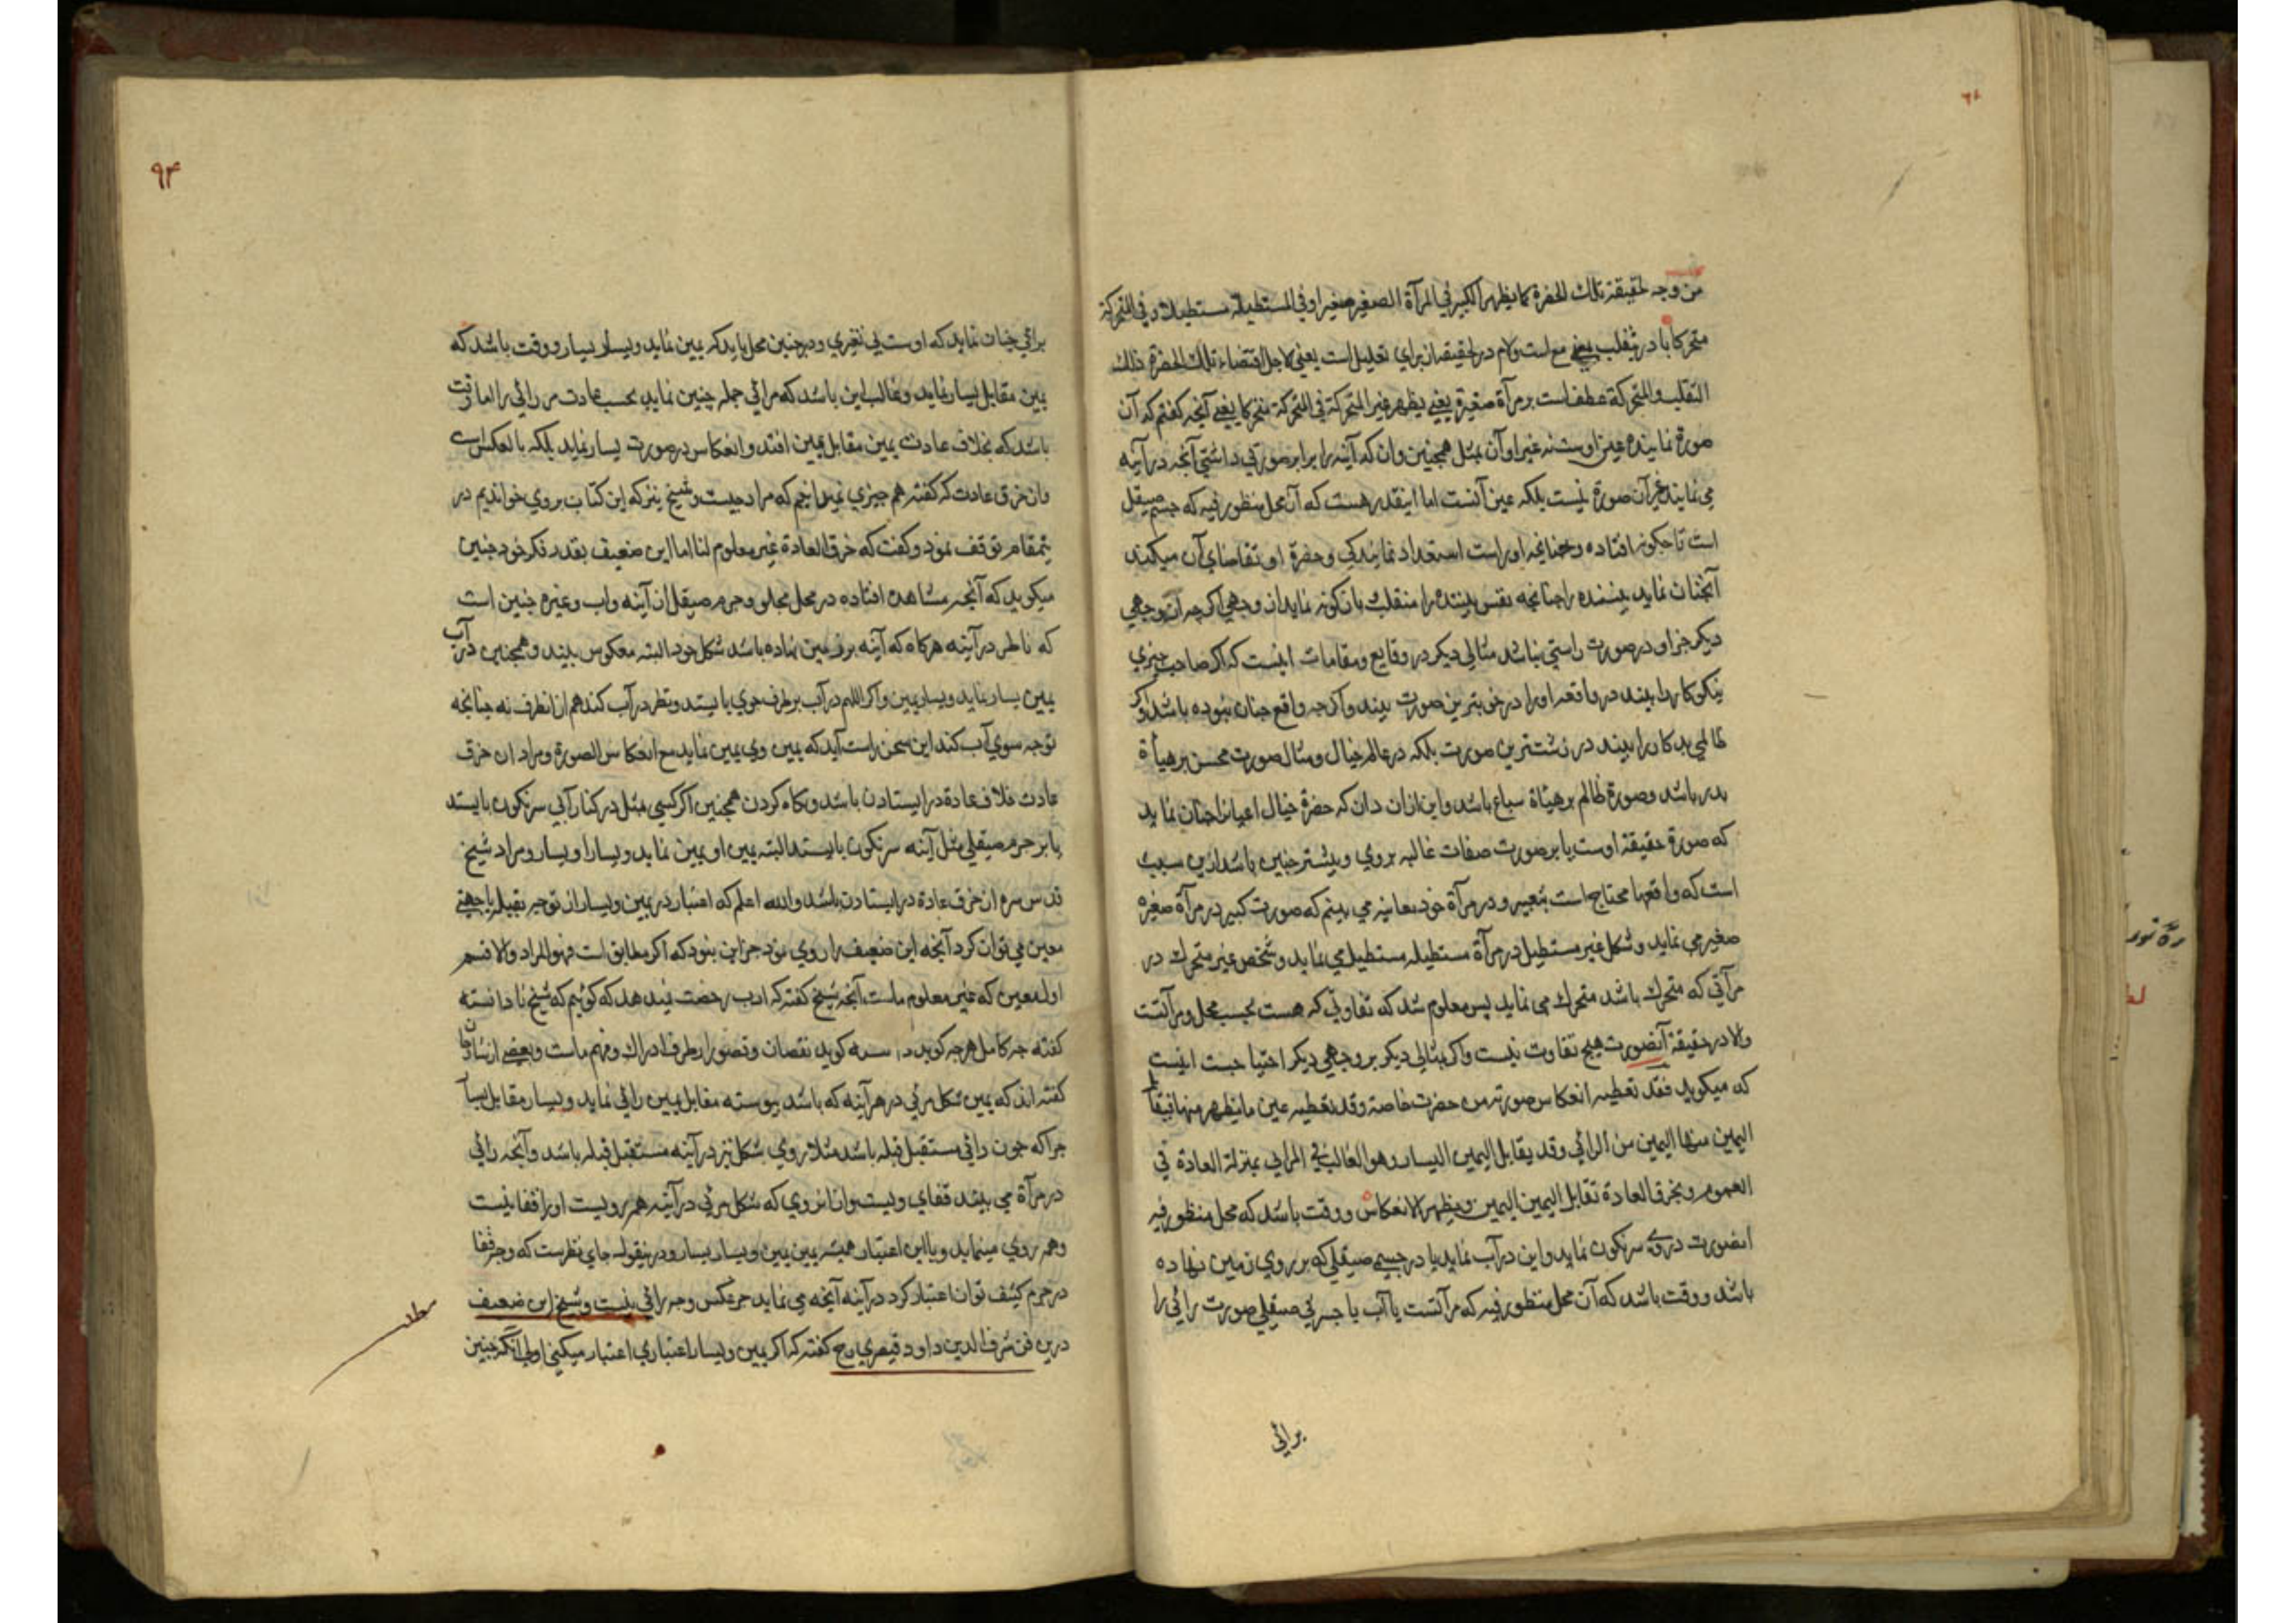 من وجه لحقيقة تلك الحضرة كما يظهر الكبير في المرآة الصغيرة صغيرا وفي المستطيلة مستطيلا وفي المتحركة
متحركا با در بتقلب يعنی مع است ولام در لحقيقة از برای تعليل است يعنی لاجل اقتضاء تلك الحضرة ذلك
التقلب والمتحركة عطف است بر مرآة صغيرة يعنی يظهر غير المتحركة فی المتحركة متحركا يعنی آنچه كفتم كه آن
صورة نماينده عين اوست نه غير او آن بمثل همچنين دان كه آينه را برابر صورتی داشتی آنچه در آينه
می نمايد غير آن صورة نيست بلكه عين آنست اما اينقدر هست كه آن محل منظور فيه كه جسم صيقل
است تا چكونه افتاده و چنانچه او راست استعداد نمايندكی و حضرة او تقاضای آن ميكند
آنچنان نمايد بيننده را چنانچه نفس بيننده را منقلب بانكونه نمايد از وجهی اكرچه آن وجهی
ديكر جز او در صورت راستی نباشد مثالی ديكر در وقايع و مقامات اينست كه اكر صاحب خبری
نيكوكار را بيند در واقعه او را در خوبترين صورت بيند و اكرچه واقع چنان نبوده باشد و اكر
ظالمی بدكار را بيند در زشت‌ترين صورت بلكه در عالم خيال و مثال صورت محسن بر هيأة
بدر باشد و صورة ظالم بر هيأة سباع باشد و اين از ان دان كه حضرة خيال اعيان را چنان نمايد
كه صورة حقيقة اوست يا بر صورت صفات غالبه بر وی و بيشتر چنين باشد از ين سبب
است كه واقعها محتاج است بتعبير و در مرآة خود معاينه می بينم كه صورت كبير در مرآة صغيره
صغير می نمايد و شكل غير مستطيل در مرآة مستطيله مستطيل می نمايد و شخص غير متحرك در
مرآتی كه متحرك باشد متحرك می نمايد پس معلوم شد كه تفاوتی كه هست بحسب محل و مرآتست
والا در حقيقة آنصورت هيچ تفاوت نيست و اكر بمثالی ديكر بر وجهی ديكر احتياجست اينست
كه ميكويد فقد تعطيه انعكاس صورته من حضرت خاصة وقد تعطيه عين ما يظهر منها فيقابل
اليمين منها اليمين من الرائی وقد يقابل اليمين اليسار وهو الغالب فی المرايی بمنزلة العادة فی
العموم وبخرق العادة تقابل اليمين اليمين ويظهر الانعكاس و وقت باشد كه محل منظور فيه
انصورت در وی سرنكون نمايد و اين در آب نمايد يا در جسم صيقلی كه بر روی زمين نهاده
باشد و وقت باشد كه آن محل منظور فيه كه مرآتست يا آب يا جسمی صيقلی صورت رائی را
برائی
۹۴
برائی چنان نمايد كه اوست بی تغيری و در چنين محل بايد كه يمين نمايد و يسار يسار و وقت باشد كه
يمين مقابل يسار نمايد و غالب اين باشد كه مرائی جمله چنين نمايد بحسب عادت مر رائی را اما وقت
باشد كه بخلاف عادت يمين مقابل يمين افتد و انعكاس در صورت يسار نمايد بلكه بالعكس است
و ان خرق عادت كه كفته هم چيزی نميدانيم كه مراد چيست و شيخ نيز كه اين كتاب بر وی خوانديم در
ينمقام توقف نمود و كفت كه خرق العادة غير معلوم لنا اما اين ضعيف بقدر فكر خود چنين
ميكويد كه آنچه مشاهده افتاده در محل مجلو و جرم صيقل از آينه و اب و غيره چنين است
كه ناظر در آينه هركاه كه آينه بر زمين نهاده باشد شكل خود البته معكوس بيند و همچنين در آب
يمين يسار نمايد و يسار يمين و اكر در آب بر طرف جوی بايستد و نظر در آب كند هم از انطرف نه چنانچه
توجه سوی آب كند اين سخن راست آيد كه يمين وی يمين نمايد مع انعكاس الصورة و مراد ان خرق
عادت خلاف عادة در ايستادن باشد و نكاه كردن همچنين اكر كسی مثل در كنار آبی سرنكون بايستد
يا بر جرم صيقلی مثل آينه سرنكون بايستد البته يمين او يمين نمايد و يسار او يسار و مراد شيخ
قدس سره از خرق عادة در ايستادن باشد والله اعلم كه اعتبار در يمين و يسار از توجه بقبله يا جهتی
معين می توان كرد آنچه اين ضعيف را روی نمود جز اين نبود كه اكر مطابق است فهو المراد والا قسم
اول معين كه غير معلوم ماست آنچه شيخ كفته كه ادب رخصت نيندهد كه كوئيم كه شيخ نادانسته
كفته چه كامل هرچه كويد نقصان و قصور از طرف ادراك و فهم ماست و بعضی از شارحان
كفته اند كه يمين شكل مرئی در هر آينه كه باشد پيوسته مقابل يمين رائی نمايد و يسار مقابل يسار
چرا كه چون رائی مستقبل قبله باشد مثلا روی شكل نيز در آينه مستقبل قبله باشد و آنچه رائی
در مرآة می بيند قفای ويست و از انروی كه شكل مرئی در آينه هم رويست او را قفا نيست
و هم روی مينمايد و با اين اعتبار هميشه يمين يمين و يسار يسار و در ينقوله جای نظرست كه وجه قفا
در جرم كثيف توان اعتبار كرد در آينه آنچه می نمايد جز عكس وجه رائی نيست و شيخ اين ضعيف
درين فن شرف الدين داود قيصری رح كفته كه اكر يمين و يسار اعتباری اعتبار ميكنی اولی آنكه چنين